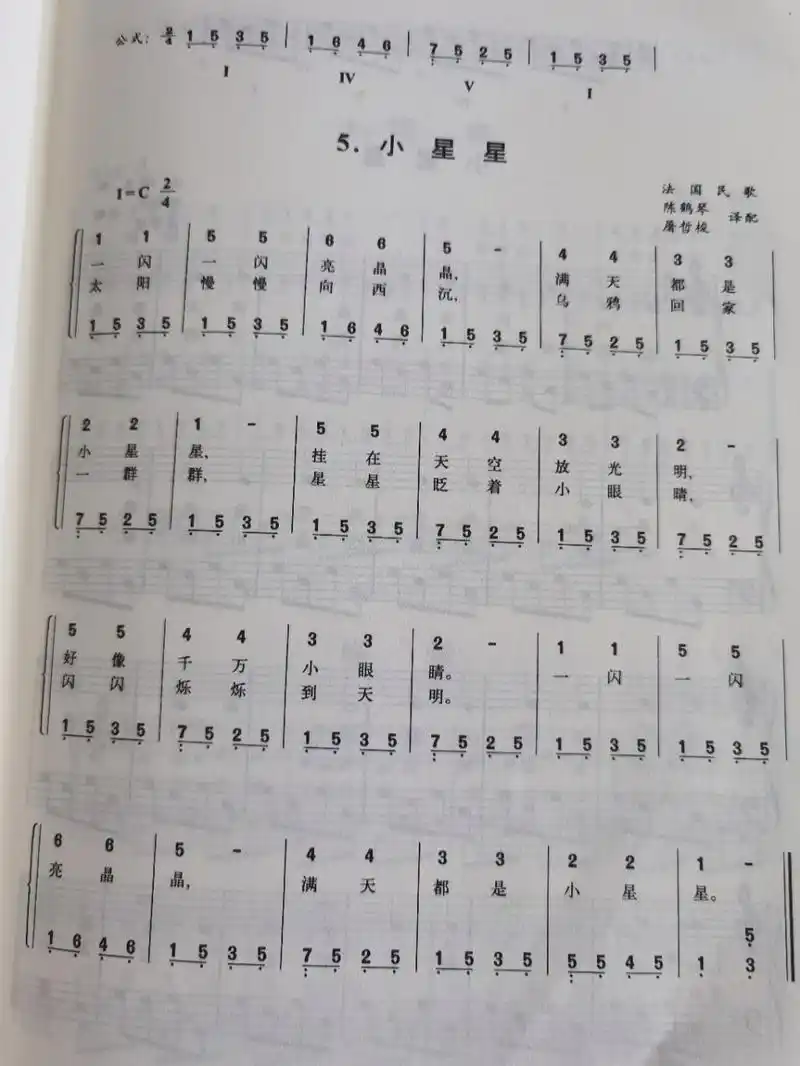 公式: 2/4 1 5 3 5 | 1 6 4 6 | 7 5 2 5 | 1 5 3 5 |
I IV V I
5. 小星星
1=C 2/4
法国民歌
陈鹤琴
屠哲梭 译配
1 1 | 5 5 | 6 6 | 5 - | 4 4 | 3 3
一闪 一闪 亮晶 晶, 满天 都是
太阳 慢慢 向西 沉, 乌鸦 回家
1 5 3 5 | 1 5 3 5 | 1 6 4 6 | 1 5 3 5 | 7 5 2 5 | 1 5 3 5
2 2 | 1 - | 5 5 | 4 4 | 3 3 | 2 -
小星 星, 挂在 天空 放光 明,
一群 群, 星星 眨着 小眼 睛,
7 5 2 5 | 1 5 3 5 | 1 5 3 5 | 7 5 2 5 | 1 5 3 5 | 7 5 2 5
5 5 | 4 4 | 3 3 | 2 - | 1 1 | 5 5
好像 千万 小眼 睛。 一闪 一闪
闪闪 烁烁 到天 明。
1 5 3 5 | 7 5 2 5 | 1 5 3 5 | 7 5 2 5 | 1 5 3 5 | 1 5 3 5
6 6 | 5 - | 4 4 | 3 3 | 2 2 | 1 -
亮晶 晶, 满天 都是 小星 星。
5
1 6 4 6 | 1 5 3 5 | 7 5 2 5 | 1 5 3 5 | 5 5 4 5 | 1 3